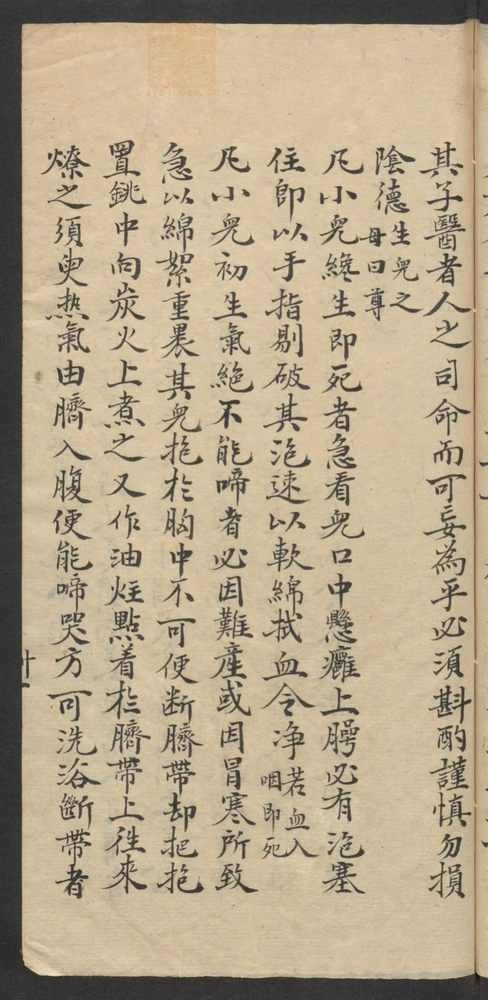 其子醫者人之司命而可妄為乎必須斟酌謹慎勿損
陰德生兒之母曰尊
凢小兒纔生即死者急看兒口中懸癰上腭必有泡塞
住即以手指剔破其泡速以軟綿拭血令净若血入咽即死
凢小兒初生氣絶不能啼者必因難産或因冒寒所致
急以綿絮重裹其兒抱扵胸中不可便断臍帶却把抱
置銚中向炭火上煮之又作油炷點着扵臍帶上徃來
燎之須臾热氣由臍入腹便能啼哭方可洗浴斷帶者